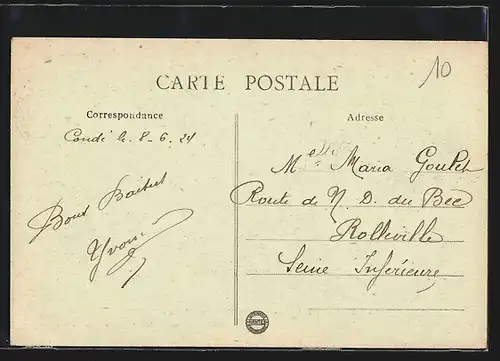 10
CARTE POSTALE
Correspondance
Condé le. 8-6.24
Bons Baisers
Yvonne
Adresse
Melle Maria Goulet
Route de N. D. du Bec
Rolleville
Seine Inférieure